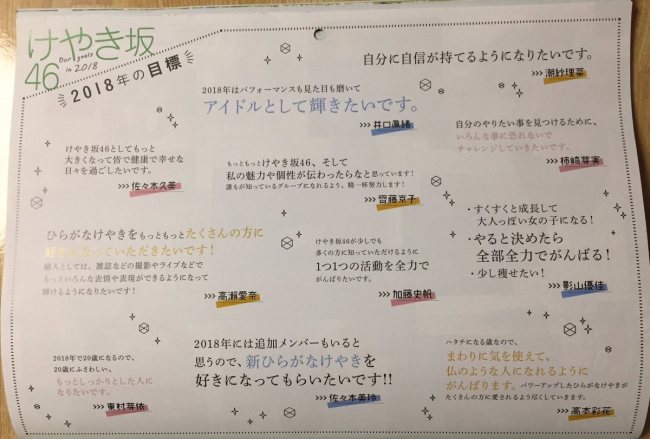 けやき坂
46
Our goals
in 2018
2018年の目標
自分に自信が持てるようになりたいです。
>>> 潮紗理菜
2018年はパフォーマンスも見た目も磨いて
アイドルとして輝きたいです。
>>> 井口眞緒
自分のやりたい事を見つけるために、
いろんな事に恐れないで
チャレンジしていきたいです。
>>> 柿崎芽実
けやき坂46としてもっと
大きくなって皆で健康で幸せな
日々を過ごしたいです。
>>> 佐々木久美
もっともっとけやき坂46、そして
私の魅力や個性が伝わったらなと思っています!
誰もが知っているグループになれるよう、精一杯努力します!
>>> 齊藤京子
ひらがなけやきをもっともっとたくさんの方に
好きになっていただきたいです!
個人としては、雑誌などの撮影やライブなどで
もっといろんな表情や表現ができるようになって
輝けるようになりたいです!
>>> 高瀬愛奈
けやき坂46が少しでも
多くの方に知っていただけるように
1つ1つの活動を全力で
がんばりたいです。
>>> 加藤史帆
・すくすくと成長して
大人っぽい女の子になる!
・やると決めたら
全部全力でがんばる!
・少し痩せたい!
>>> 影山優佳
2018年で20歳になるので、
20歳にふさわしい、
もっとしっかりとした人に
なりたいです。
>>> 東村芽依
2018年には追加メンバーもいると
思うので、新ひらがなけやきを
好きになってもらいたいです!!
>>> 佐々木美玲
ハタチになる歳なので、
まわりに気を使えて、
仏のような人になれるように
がんばります。パワーアップしたひらがなけやきが
たくさんの方に愛されるよう尽くしていきます。
>>> 高本彩花